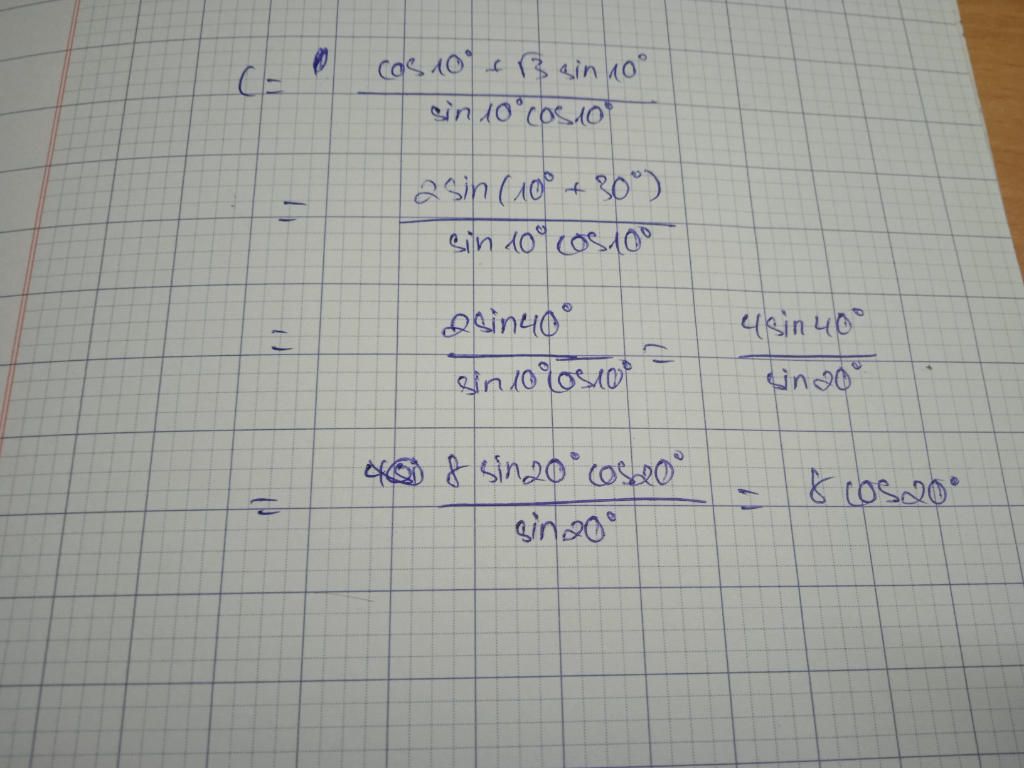 C = (cos10° + √3 sin10°) / (sin10° cos10°)
= 2sin(10° + 30°) / (sin10° cos10°)
= 2sin40° / (sin10° cos10°) = 4sin40° / sin20°
= 8 sin20° cos20° / sin20° = 8 cos20°